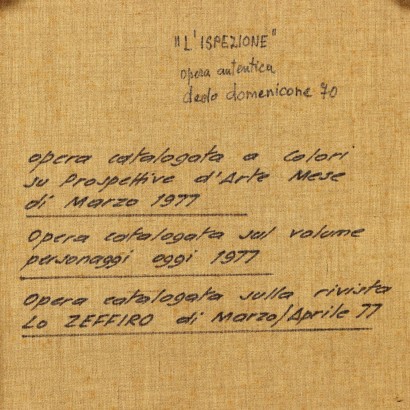 "L'ISPEZIONE"
opera autentica
dedo domenicone 70
opera catalogata a Colori
su Prospettive d'Arte Mese
di Marzo 1977
Opera catalogata sul volume
personaggi oggi 1977
Opera catalogata sulla rivista
Lo ZEFFIRO di Marzo/Aprile 77